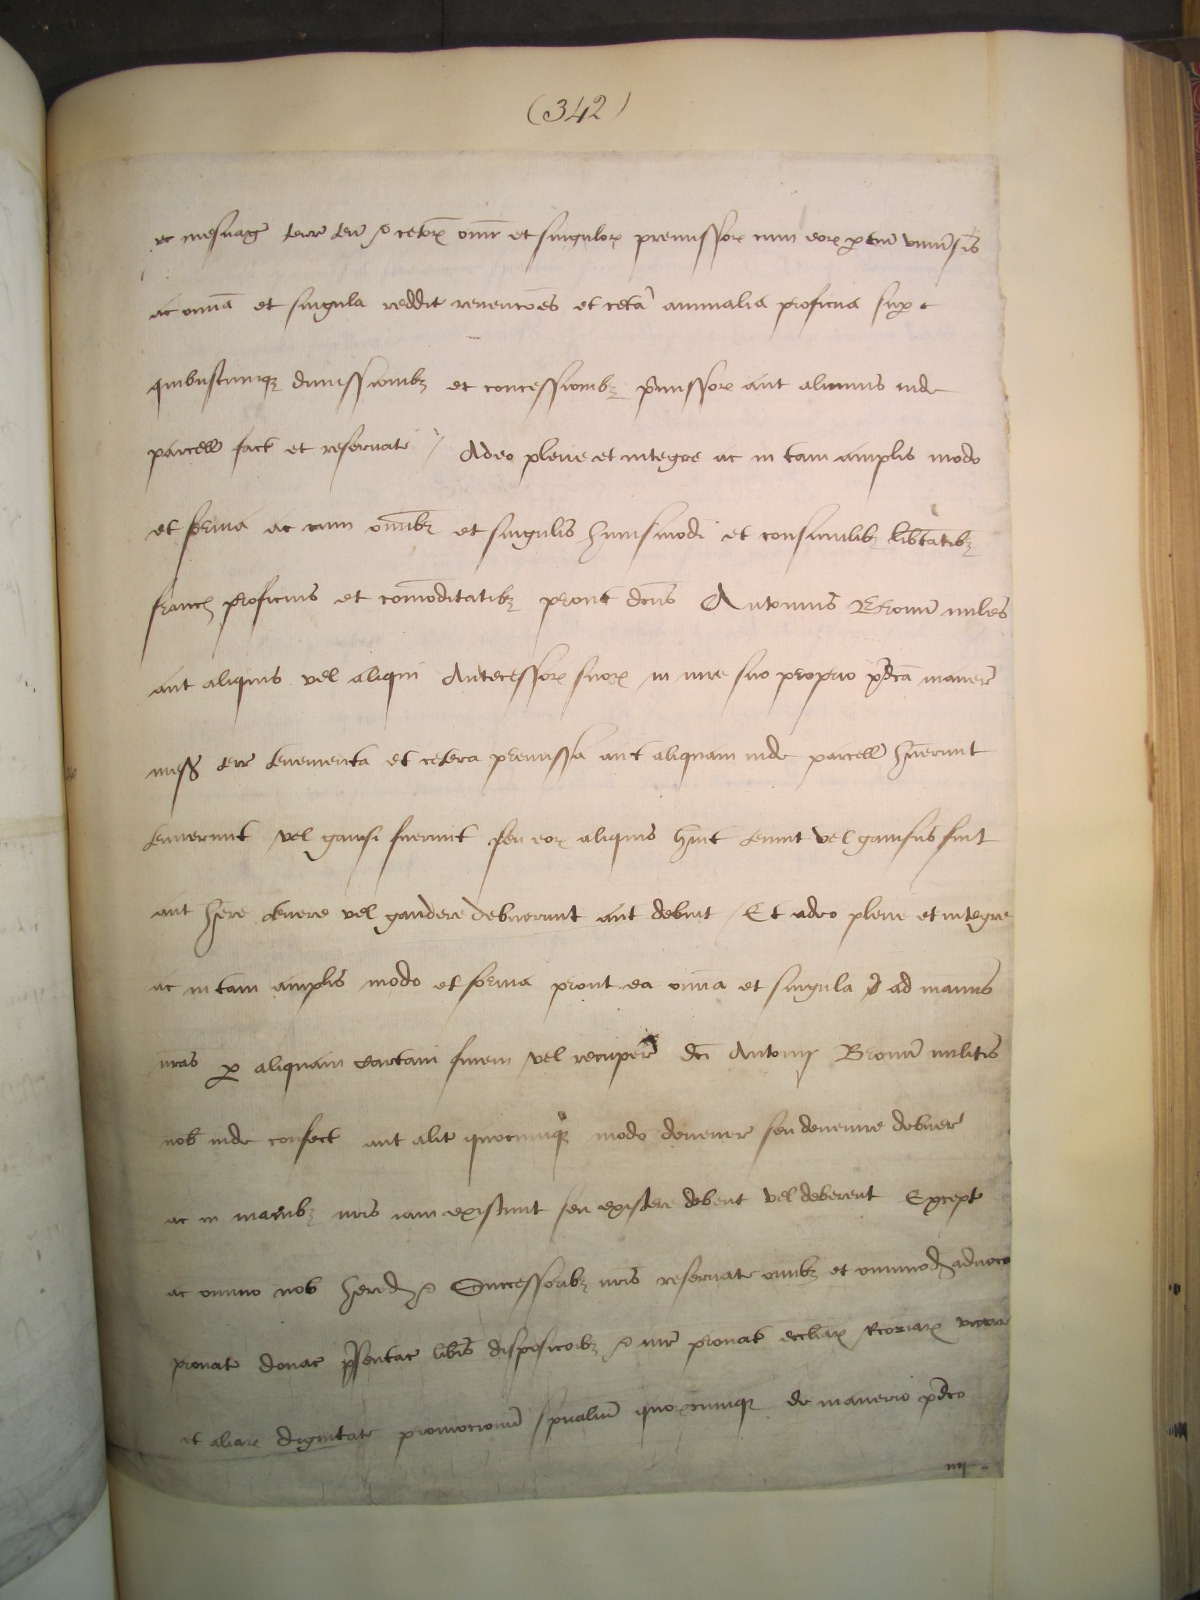 (342)
ac mesuag terr ten & cetorx omī et singulorx premissorx cum eorx ptin univsis
ac omīa et singula reddit revencōes et cetā annualia proficua sup
quibuscumqz dimissionibz et concessionibz pmissorx aut alicuius inde
parcell fact et reservate / Adeo plene et integre ac in tam amplis modo
et forma ac cum omībz et singulis huiusmodi et consimilibz libtatibz
franch proficuis et comōditatibz prout dcus Antonius Broun miles
aut aliquis vel aliqui Antecessorx suorx in iure suo proprio pdca maner
mess terr tenementa et cetera premissa aut aliquam inde parcell huerunt
tenuerunt vel gavisi fuerunt seu eorx aliquis huit tenuit vel gavisus fuit
aut here tenere vel gaudere debuerunt aut debuit / Et adeo plene et integre
ac in tam amplis modo et forma prout ea omīa et singula ad manus
nras p aliquam cartam finem vel recuper dci Antonij Broun militis
nob inde confect aut alit quocumqz modo devener seu devenire debuer
ac in manibz nris iam existunt seu existere debent vel deberent Except
ac omino nob hered & Successoribz nris reservate omībz et omnimod advoco
pronat donac psentac libis disposicoibz & iur pronat ecclīarx Rcoriarx vicar
et aliarx dignitate promocionū spūaliū quorxcumqz de manerio pdco